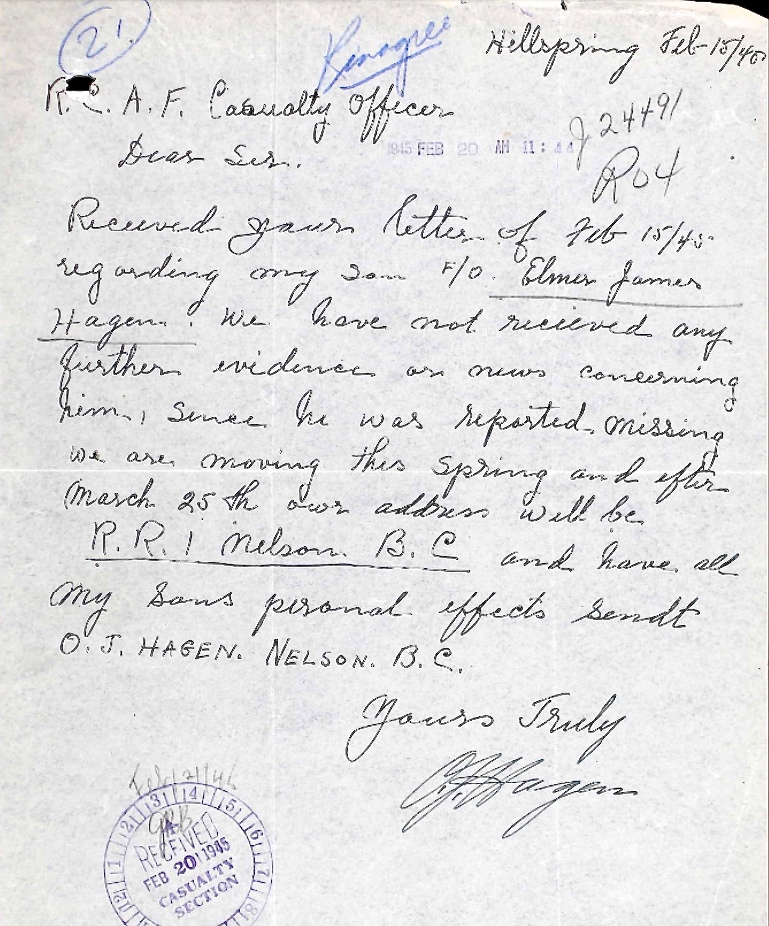 21.
Hillspring Feb 15/45
R.C.A.F. Casualty Officer
J24491
Dear Sir.
1945 FEB 20 AM 11:44
R04
Received yours letter of Feb 15/45
regarding my son F/O. Elmer James
Hagen. We have not recieved any
further evidence or news concerning
him, since he was reported missing
we are moving this spring and after
March 25th our address will be
R.R.1 Nelson. B.C and have all
my sons pironal effects sendt
O.J. HAGEN. NELSON. B.C.
Yours Truly
O.J. Hagen
12 1 2 3 4 5 6 7 8
RECEIVED
FEB 20 1945
CASUALTY
SECTION